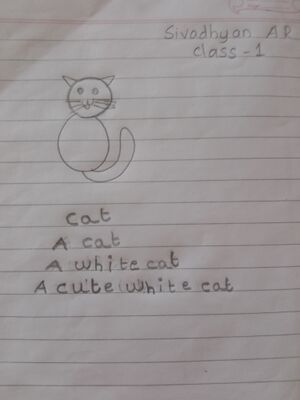 Sivadhyan A R
class - 1
cat
A cat
A white cat
A cute white cat